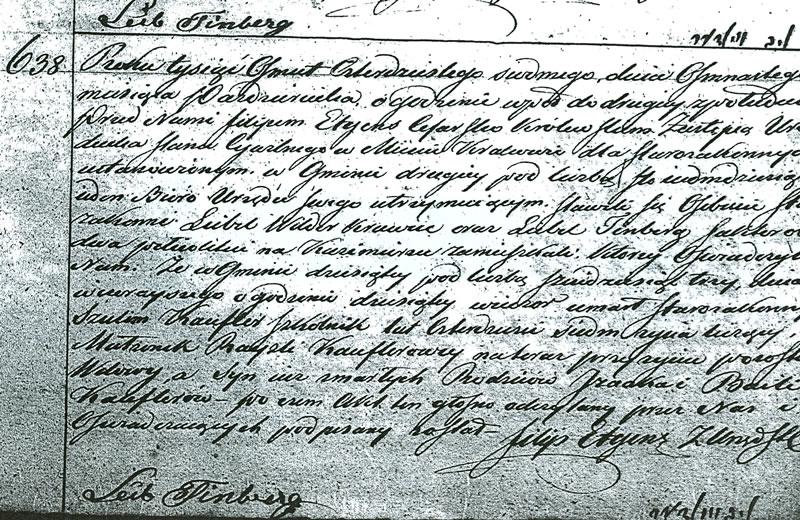 Leib Finberg
638
Roku tysiąc Ośmset Czterdziestego siudmego, dnia Ośmnastego
miesiąca Października o godzinie wpół do drugiej z południa
Przed Nami Filipem Etgens Cesarsko Królewskim Zastępcą Urzę
dnika Stanu Cywilnego w Mieście Krakowie dla Starozakonnych
ustanowionym w Gminie drugiej pod liczbą sto siedmdziesiąt
jeden Biuro Urzędu swego utrzymującym. Stawili się Osobiście Sta
rozakonni Leibel Wilder Krawiec oraz Leibel Finberg faktor o
dwa pełnoletni na Kazimierzu zamieszkali. Którzy Oświadczyli
Nam: Że w Gminie dziesiątej pod liczbą sześdziesiąt trzy, dnia
wczorajszego o godzinie dziesiątej wieczór umarł Starozakonny
Szulem Kaufler Szkolnik lat Czterdzieści siedm życia liczący
Małżonek Rayzli Kauflerowej na teraz przy życiu pozosta
Wdowy a Syn już zmarłych Rodziców Izaaka i Baili
Kauflerów - po czem Akt ten głośno odczytany przez Nas i
Oświadczających podpisany został Filip Etgens Z Urzęd St C
Leib Finberg